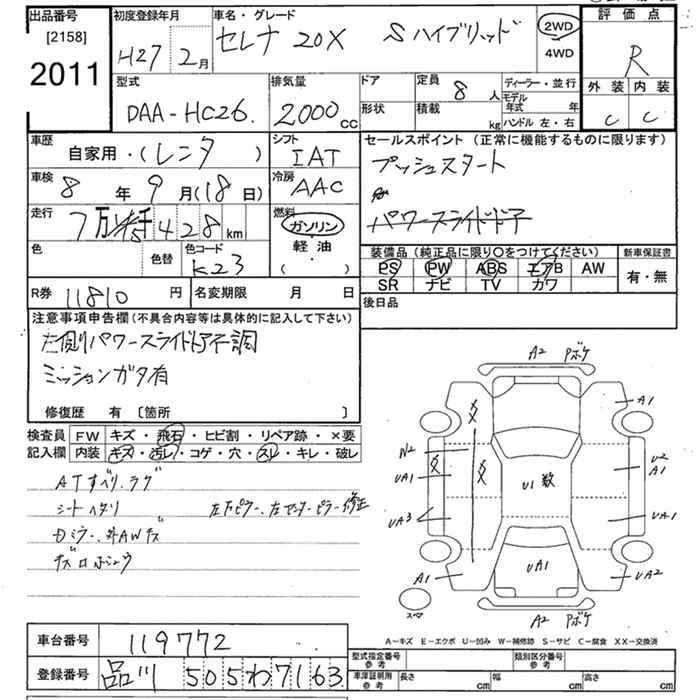 出品番号
[2158]
2011
初度登録年月
H27 2月
車名・グレード
セレナ 20X Sハイブリッド
2WD
4WD
評価点
R
外装 内装
C C
型式
DAA-HC26.
排気量
2000cc
ドア
形状
定員 8人
積載 kg
ディーラー・並行
モデル年式 年
ハンドル 左・右
車歴
自家用・(レンタ )
シフト
IAT
セールスポイント(正常に機能するものに限ります)
プッシュスタート
パワースライドド子
車検
8年 9月(18日)
冷房
AAC
走行
7万 千428km
燃料
ガソリン
軽油
( ・ )
色
色替
色コード
K23
装備品(純正品に限り○をつけてください)
PS PW ABS エアB AW
SR ナビ TV カワ
新車保証書
有・無
R券 11810円
名変期限 月 日
後日品
注意事項申告欄(不具合内容等は具体的に記入して下さい)
左側パワースライドドア不調
ミッションガタ有
修復歴 有 [箇所 ]
検査員
記入欄
FW キズ・飛石・ヒビ割・リペア跡・×要
内装 キズ・汚レ・コゲ・穴・スレ・キレ・破レ
ATすべり.ラグ
シートヘタリ
左Fピラー.左センターピラー修正
A2 Pボケ
A1
W2
UA1
UA3
A1
U1数
U2
A1
UA1
UA1
UA2
スペア
A2 Pボケ
A-キズ E-エクボ U-凹み W-補修跡 S-サビ C-腐食 XX-交換済
車台番号 119772
登録番号 品川 505わ7163
型式指定番号
参考
類別区分番号
参考
車庫証明用
参考
長さ cm
幅 cm
高さ cm